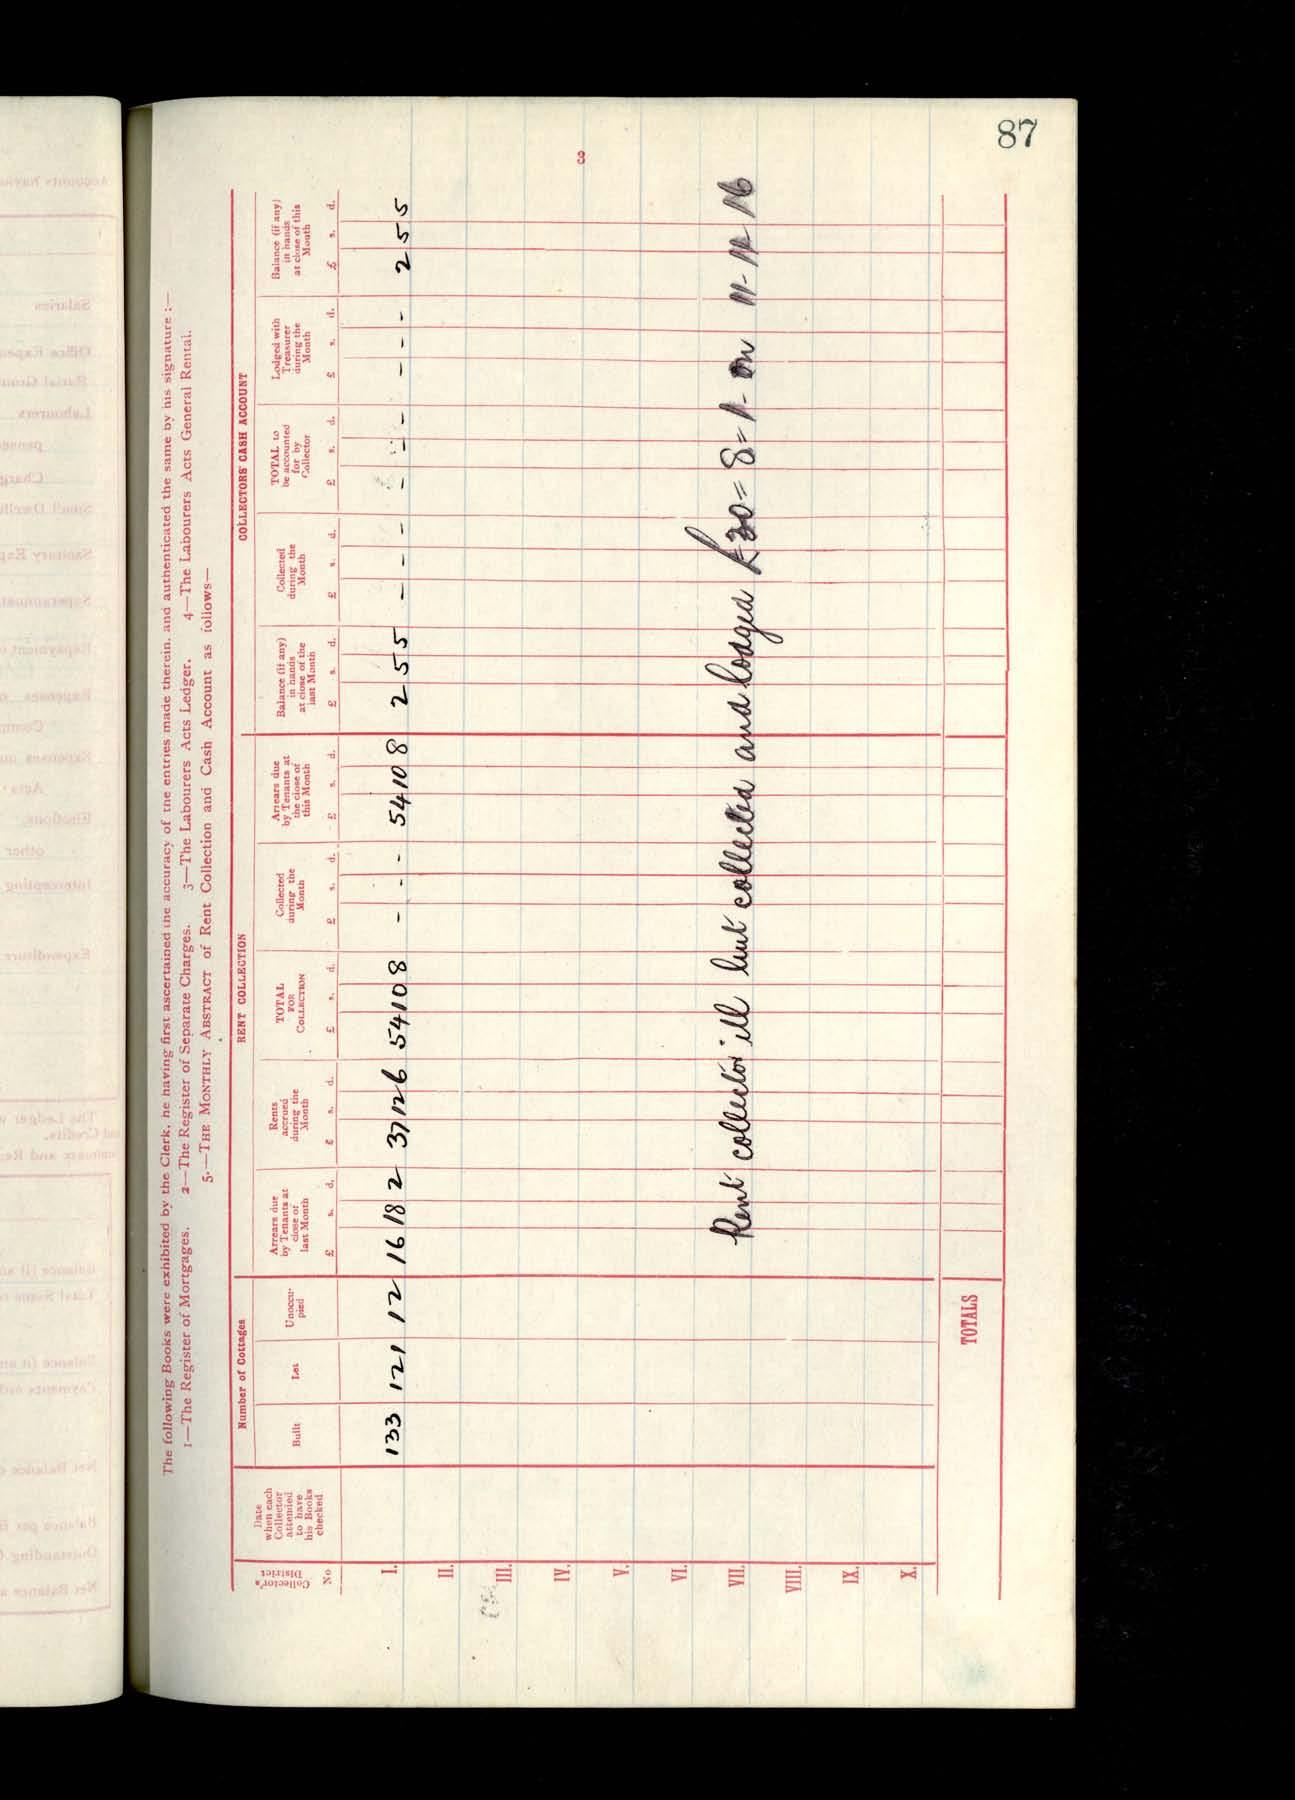 87
The following Books were exhibited by the Clerk, he having first ascertained the accuracy of the entries made therein, and authenticated the same by his signature :—
1—The Register of Mortgages. 2—The Register of Separate Charges. 3—The Labourers Acts Ledger. 4—The Labourers Acts General Rental.
5.—THE MONTHLY ABSTRACT of Rent Collection and Cash Account as follows—
Number of Cottages RENT COLLECTION COLLECTORS' CASH ACCOUNT
Collector's District No
Date when each Collector attended to have his Books checked
Built
Let
Unoccu-pied
Arrears due by Tenants at close of last Month £ s. d.
Rents accrued during the Month £ s. d.
TOTAL FOR COLLECTION £ s. d.
Collected during the Month £ s. d.
Arrears due by Tenants at the close of this Month £ s. d.
Balance (if any) in hands at close of the last Month £ s. d.
Collected during the Month £ s. d.
TOTAL to be accounted for by Collector £ s. d.
Lodged with Treasurer during the Month £ s. d.
Balance (if any) in hands at close of this Month £ s. d.
I. 133 121 12 16 18 2 37 12 6 54 10 8 - - - 54 10 8 2 5 5 - - - - - - - - - 2 5 5
II.
III.
IV.
V.
VI.
VII. Rent collector ill but collected and lodged £30=8=1- on 11-11-16
VIII.
IX.
X.
TOTALS
8
Salaries
Labourers
Sanitary
Expenses
Elections,
other
Intercepting
Expenditure
The Ledger
and Credits.
Net Balance
Outstanding
Net Balance